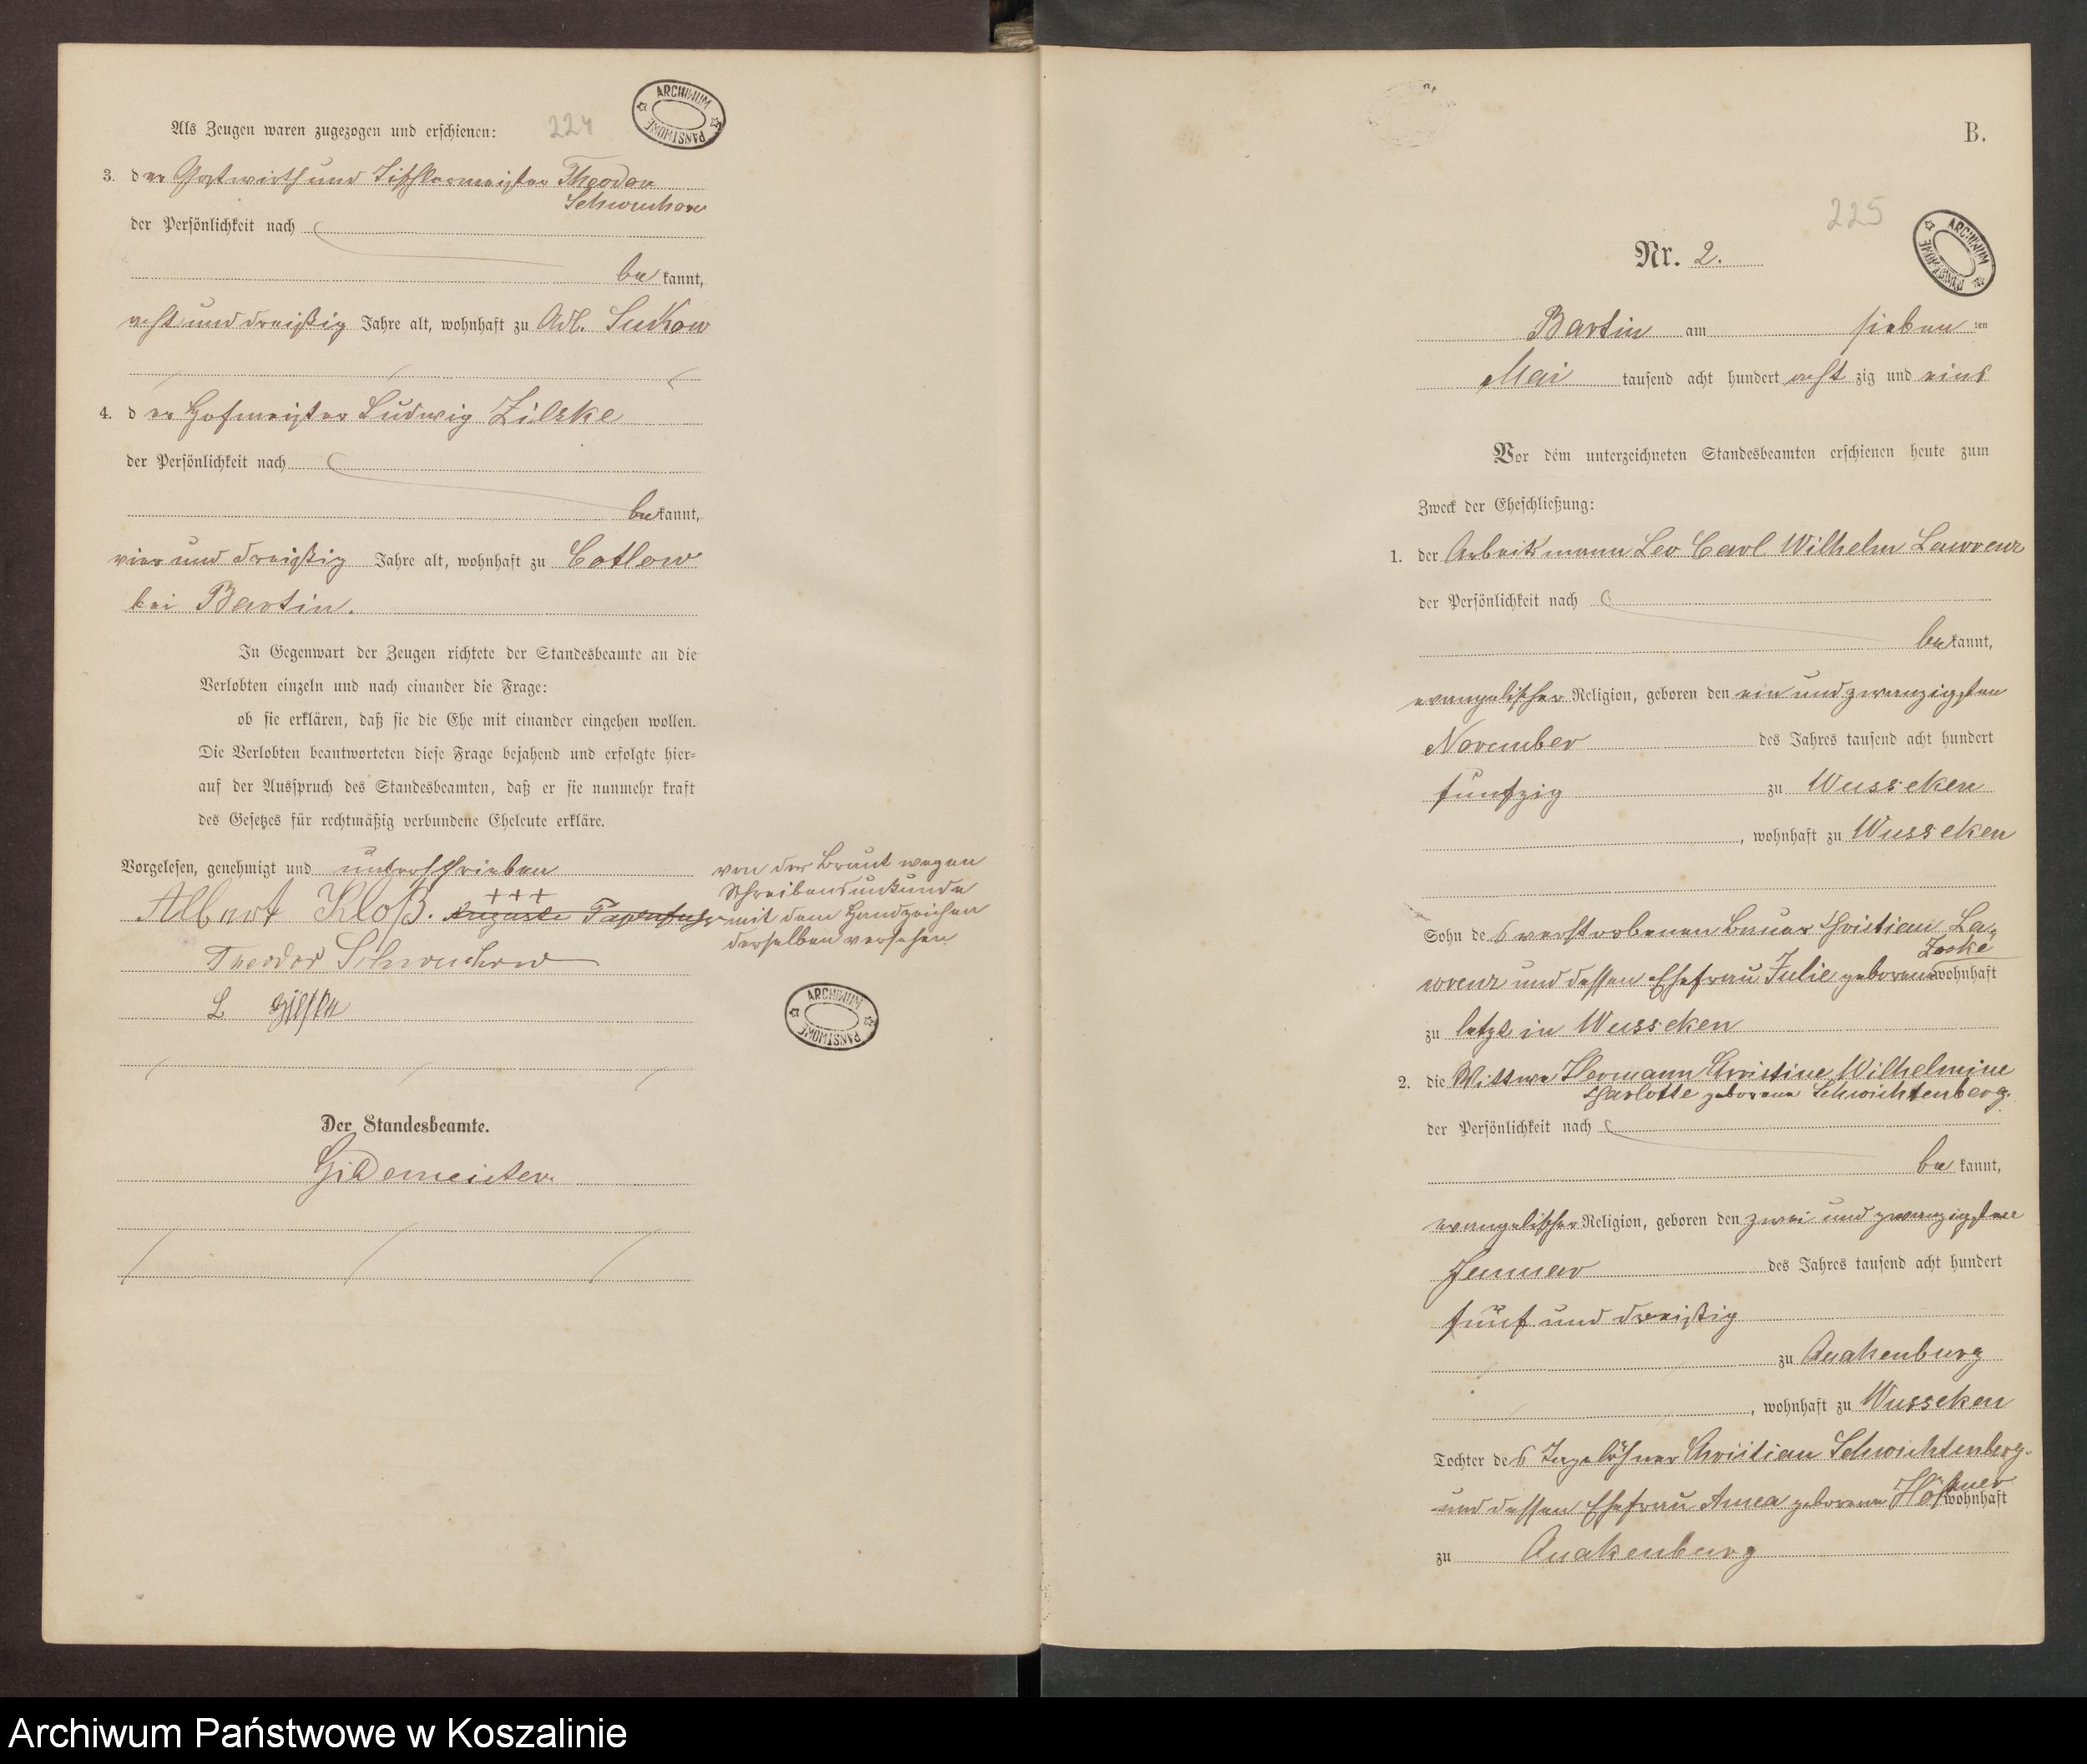 Als Zeugen waren zugezogen und erschienen:
224
ARCHIWUM PAŃSTWOWE
3. der Gastwirth und Tischlermeister Theodor
Schwuchow
der Persönlichkeit nach
be kannt,
acht und dreißig Jahre alt, wohnhaft zu Adl. Suckow
4. der Hofmeister Ludwig Zilske
der Persönlichkeit nach
be kannt,
vier und dreißig Jahre alt, wohnhaft zu Cotlow
bei Bartin.
In Gegenwart der Zeugen richtete der Standesbeamte an die
Verlobten einzeln und nach einander die Frage:
ob sie erklären, daß sie die Ehe mit einander eingehen wollen.
Die Verlobten beantworteten diese Frage bejahend und erfolgte hier-
auf der Ausspruch des Standesbeamten, daß er sie nunmehr kraft
des Gesetzes für rechtmäßig verbundene Eheleute erkläre.
Vorgelesen, genehmigt und unterschrieben
von der Braut wegen
Schreibensunkunde
mit dem Handzeichen
derselben versehen
+++
Albert Kloß. Auguste
Theodor Schwuchow
L Zilske
ARCHIWUM PAŃSTWOWE
Der Standesbeamte.
Gildemeister.
B.
225
ARCHIWUM PAŃSTWOWE
Nr. 2.
Bartin am sieben ten
Mai tausend acht hundert acht zig und eins
Vor dem unterzeichneten Standesbeamten erschienen heute zum
Zweck der Eheschließung:
1. der Arbeitsmann Leo Carl Wilhelm Lawrenz
der Persönlichkeit nach
be kannt,
evangelischer Religion, geboren den ein und zwanzigsten
November des Jahres tausend acht hundert
fünfzig zu Wusseken
, wohnhaft zu Wusseken
Sohn des verstorbenen Bauer Christian La-
wrenz und dessen Ehefrau Julie geborene Zoske wohnhaft
zu letzt in Wusseken
2. die Wittwe Hermann Christine Wilhelmine
Charlotte geborene Schwichtenberg.
der Persönlichkeit nach
be kannt,
evangelischer Religion, geboren den zwei und zwanzigsten
Januar des Jahres tausend acht hundert
fünf und dreißig
zu Quakenburg
, wohnhaft zu Wusseken
Tochter des Tagelöhner Christian Schwichtenberg
und dessen Ehefrau Anna geborene Höfner wohnhaft
zu Quakenburg
Archiwum Państwowe w Koszalinie